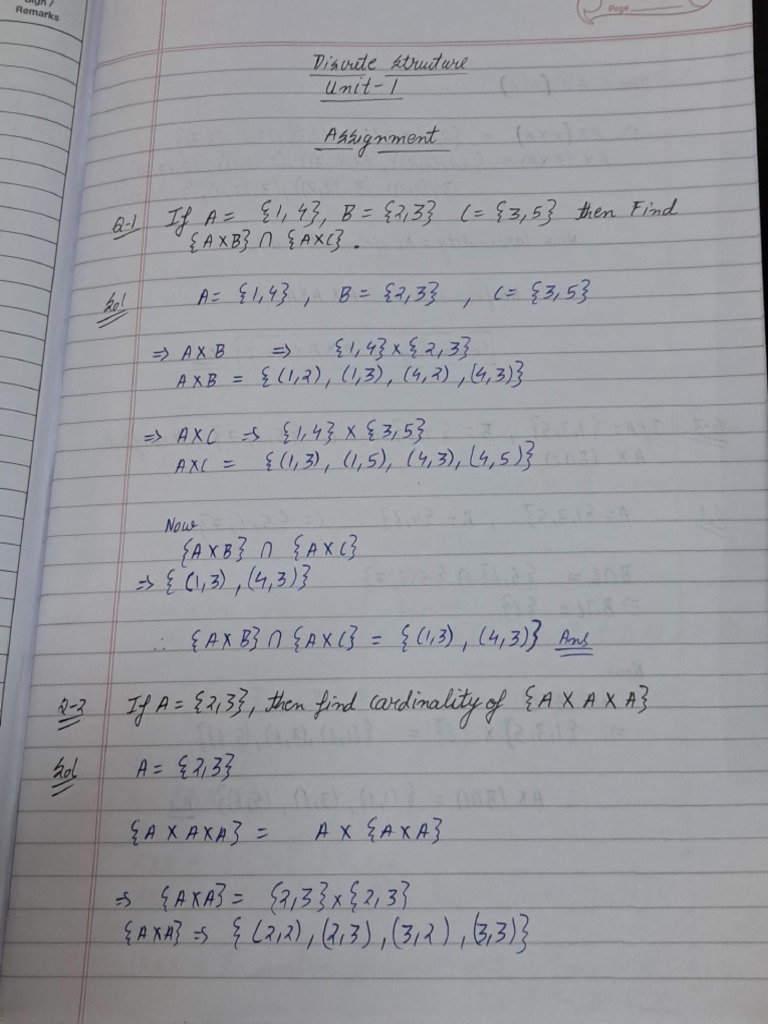 Sign /
Remarks
Page
Discrete structure
Unit-1
Assignment
Q-1 If A = {1,4}, B = {2,3} C = {3,5} then Find
{AXB} ∩ {AXC}.
Sol A = {1,4}, B = {2,3}, C = {3,5}
⇒ AXB ⇒ {1,4} × {2,3}
AXB = {(1,2), (1,3), (4,2), (4,3)}
⇒ AXC ⇒ {1,4} × {3,5}
AXC = {(1,3), (1,5), (4,3), (4,5)}
Now
{AXB} ∩ {AXC}
⇒ {(1,3), (4,3)}
∴ {AXB} ∩ {AXC} = {(1,3), (4,3)} Ans
Q-2 If A = {2,3}, then find cardinality of {A X A X A}
Sol A = {2,3}
{A X A X A} = A X {A X A}
⇒ {AXA} = {2,3} × {2,3}
{AXA} ⇒ {(2,2), (2,3), (3,2), (3,3)}